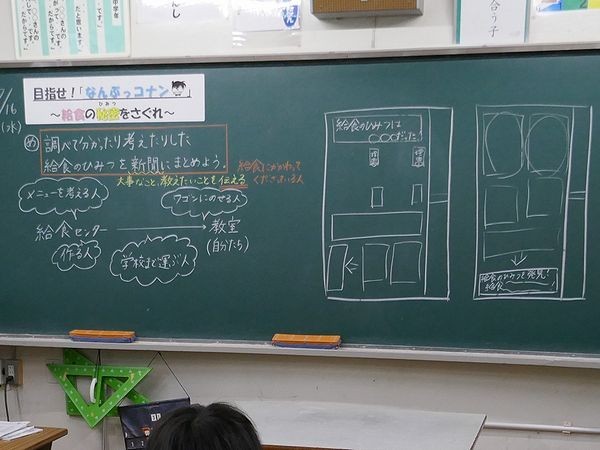 合う子
/16
(水)
目指せ！「なんぶっコナン」
～給食の秘密をさぐれ～
ひみつ
め
調べて分かったり考えたりした
給食のひみつを新聞にまとめよう。
大事なこと、教えたいことを伝える
給食にかかわって
くださっている人
メニューを考える人
ワゴンにのせる人
給食センター
教室
(自分たち)
作る人
学校まで運ぶ人
給食のひみつは
○○○だった!
給食のひみつを発見!
給食